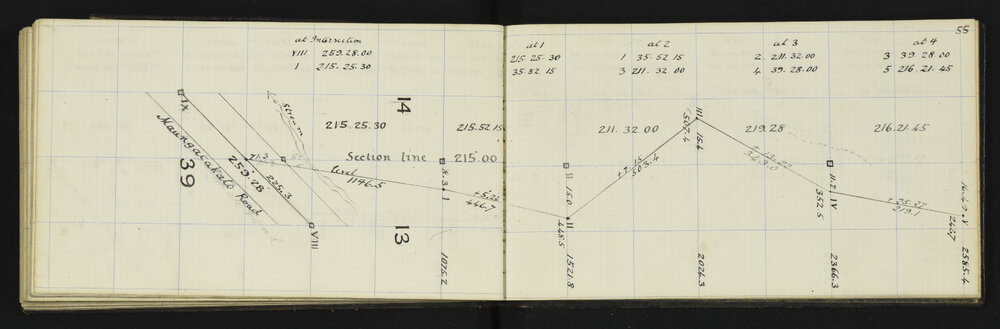 55
at Intersection
VIII 259.28.00
I 215.25.30
at 1
215.25.30
35.52.15
at 2
1 35.52.15
3 211.32.00
at 3
2 211.32.00
4 39.28.00
at 4
3 39.28.00
5 216.21.45
IX
Stream
14
215.25.30
215.52.15
211.32.00
219.28
216.21.45
39
Maungatakato Road
259.28
225.3
71.3
Section line
215.00
Level
1146.5
8.3
I
446.7
II
15.0
II
503.4
III
15.4
507.4
343.0
11.2
IV
352.5
219.1
V
243.7
VIII
13
448.5
1075.2
1521.8
2024.3
2366.3
2585.4